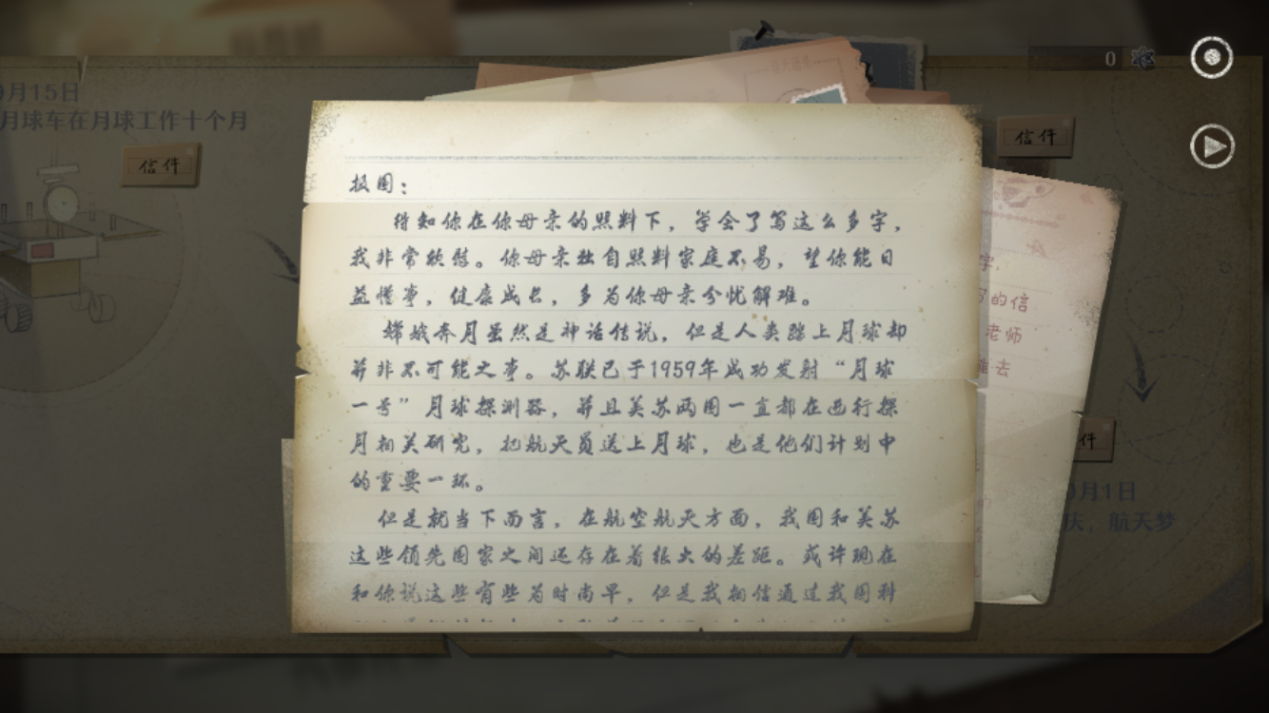 月15日
月球车在月球工作十个月
信件
0
信件
报国：
得知你在你母亲的照料下，学会了写这么多字，
我非常欣慰。你母亲独自照料家庭不易，望你能日
益懂事，健康成长，多为你母亲分忧解难。
嫦娥奔月虽然是神话传说，但是人类踏上月球却
并非不可能之事。苏联已于1959年成功发射“月球
一号”月球探测器，并且美苏两国一直都在进行探
月相关研究，把航天员送上月球，也是他们计划中
的重要一环。
但是就当下而言，在航空航天方面，我国和美苏
这些领先国家之间还存在着很大的差距。或许现在
和你说这些有些为时尚早，但是我相信通过我国科
字，
的信
老师
去
件
月1日
庆，航天梦